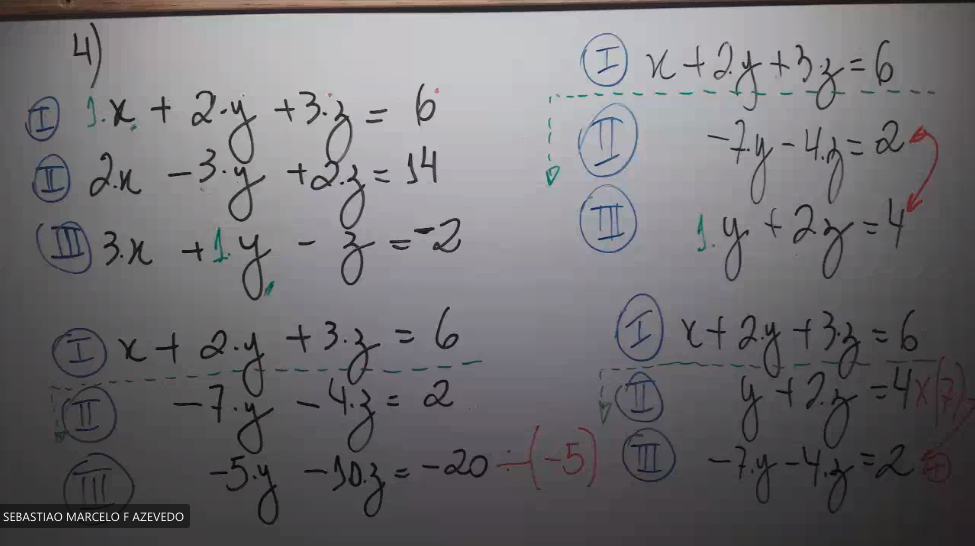 4)
I 1.x + 2.y + 3.z = 6
II 2.x - 3.y + 2.z = 14
III 3.x + 1.y - z = -2
I x + 2.y + 3.z = 6
II -7.y - 4.z = 2
III -5.y - 10.z = -20 ÷(-5)
I x + 2.y + 3.z = 6
II -7.y - 4.z = 2
III 1.y + 2z = 4
I x + 2.y + 3.z = 6
II y + 2.z = 4 x(7)
III -7.y - 4.z = 2 +
SEBASTIAO MARCELO F AZEVEDO